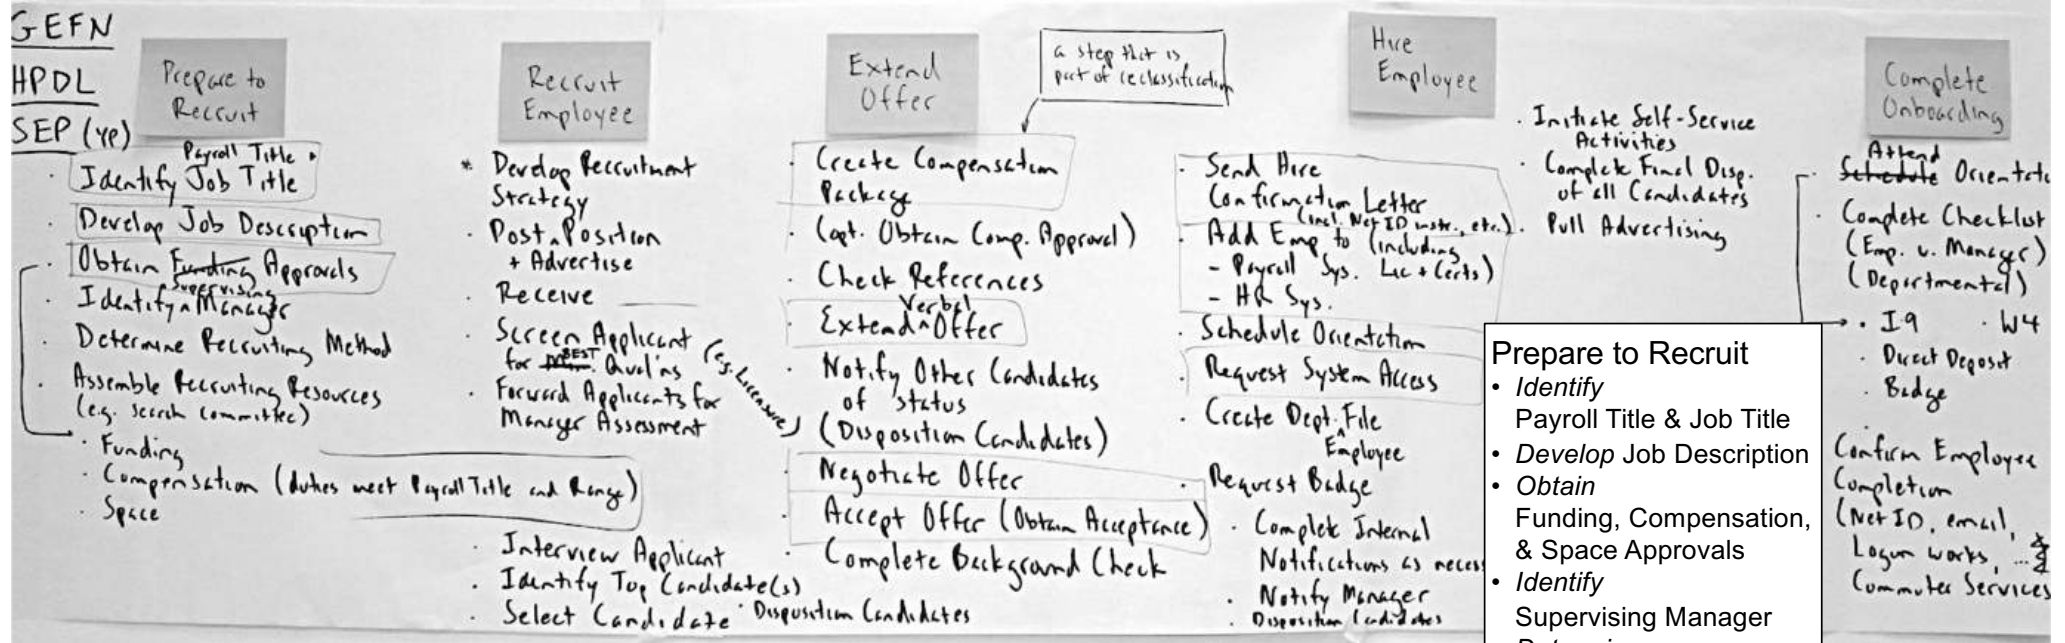 GEFN
HPDL
SEP (yp)
Prepare to
Recruit
Payroll Title
· Identify Job Title
· Develop Job Description
· Obtain Funding Approvals
Supervising
· Identify ^ Manager
· Determine Recruiting Method
· Assemble Recruiting Resources
(e.g. search committee)
· Funding
· Compensation (duties meet Payroll Title and Range)
· Space
Recruit
Employee
* Develop Recruitment
Strategy
· Post Position
+ Advertise
· Receive
· Screen Applicant
for BEST Qual'ns
(e.g. Licensure)
· Forward Applicants for
Manager Assessment
· Interview Applicant
· Identify Top Candidate(s)
· Select Candidate · Disposition Candidates
Extend
Offer
a step that is
part of reclassification
· Create Compensation
Package
· (opt. Obtain Comp. Approval)
· Check References
Verbal
· Extend ^ Offer
· Notify Other Candidates
of status
(Disposition Candidates)
· Negotiate Offer
· Accept Offer (Obtain Acceptance)
· Complete Background Check
Hire
Employee
· Send Hire
Confirmation Letter
(incl. Net ID instr., etc.)
· Add Emp to (including
- Payroll Sys. Lic + Certs)
- HR Sys.
· Schedule Orientation
· Request System Access
· Create Dept. ^ File
Employee
· Request Badge
· Complete Internal
Notifications as neces
· Notify Manager
· Disposition Candidates
· Initiate Self-Service
Activities
· Complete Final Disp.
of all Candidates
· Pull Advertising
Complete
Onboarding
Attend
· Schedule Orientatio
· Complete Checklist
(Emp. v. Manager)
(Departmental)
· I9 · W4
· Direct Deposit
· Badge
Confirm Employee
Completion
(Net ID, email,
Logon works, ...
Commuter Services
Prepare to Recruit
• Identify
Payroll Title & Job Title
• Develop Job Description
• Obtain
Funding, Compensation,
& Space Approvals
• Identify
Supervising Manager